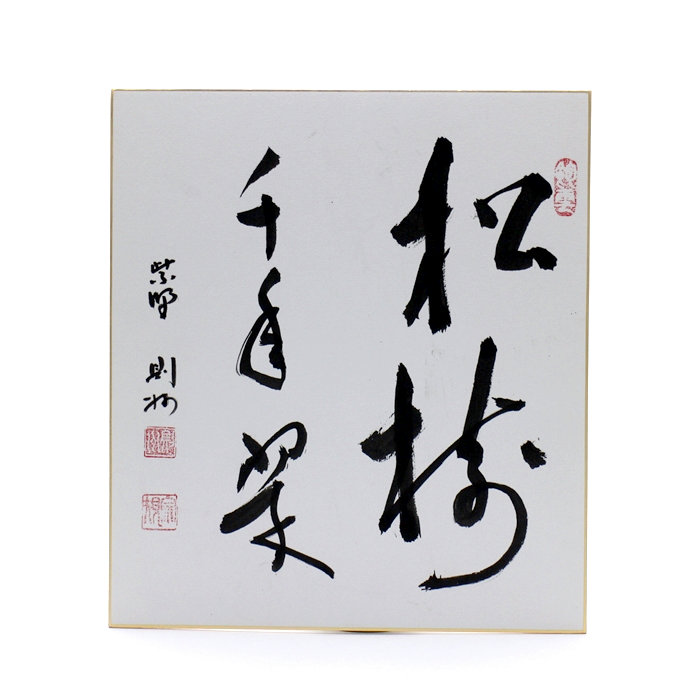 松樹
千年翠
紫野 則州